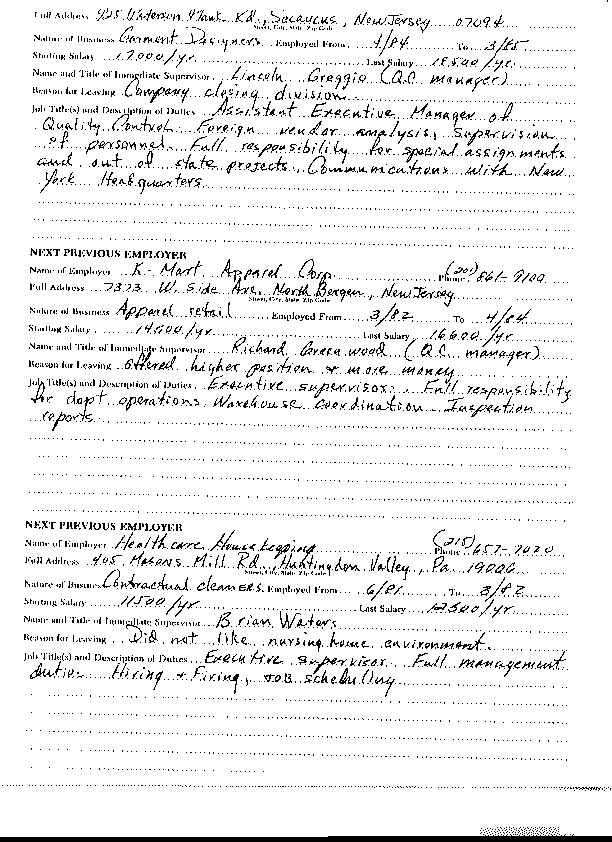 Full Address 925 Paterson Plank Rd., Secaucus, New Jersey 07094
Street, City, State, Zip Code
Nature of Business Garment Designers Employed From 4/84 To 3/85
Starting Salary 17,000/yr. Last Salary 18,500/yr.
Name and Title of Immediate Supervisor Lincoln Greggio (Q.C. manager)
Reason for Leaving Company closing division
Job Title(s) and Description of Duties Assistant Executive Manager of
Quality Control. Foreign vendor analysis, Supervision
of personnel. Full responsibility for special assignments
and out of state projects. Communications with New
York Headquarters
NEXT PREVIOUS EMPLOYER
Name of Employer K-Mart Apparel Corp. Phone (201) 861-9100
Full Address 7373 W. Side Ave. North Bergen, New Jersey
Street, City, State, Zip Code
Nature of Business Apparel retail Employed From 3/82 To 4/84
Starting Salary 14,500/yr. Last Salary 16,600/yr.
Name and Title of Immediate Supervisor Richard Greenwood (Q.C. manager)
Reason for Leaving offered higher position & more money
Job Title(s) and Description of Duties Executive supervisor. Full responsibility
for dept operations. Warehouse coordination. Inspection
reports
NEXT PREVIOUS EMPLOYER
Name of Employer Healthcare Housekeeping Phone (215) 657-7020
Full Address 905 Masons Mill Rd., Huntingdon Valley, Pa. 19006
Street, City, State, Zip Code
Nature of Business Contractual cleaners. Employed From 6/81 To 3/82
Starting Salary 11500/yr Last Salary 12500/yr.
Name and Title of Immediate Supervisor Brian Waters
Reason for Leaving Did not like nursing home environment.
Job Title(s) and Description of Duties Executive supervisor. Full management
duties Hiring & Firing, job scheduling